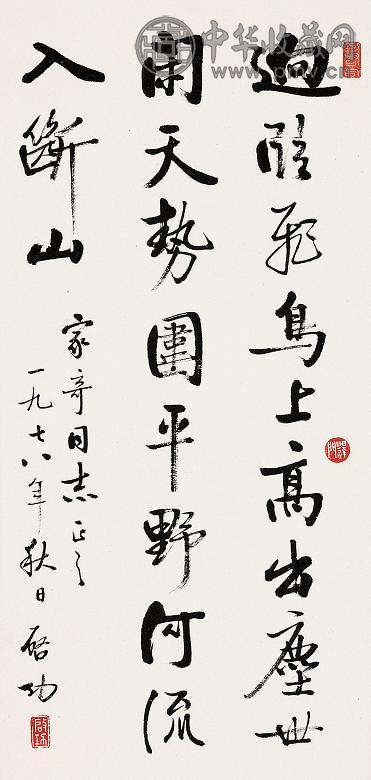 逈臨飛鳥上高出塵世
間天勢圍平野河流
入斷山
家奇同志正之
一九七八年秋日 启功
中华收藏网